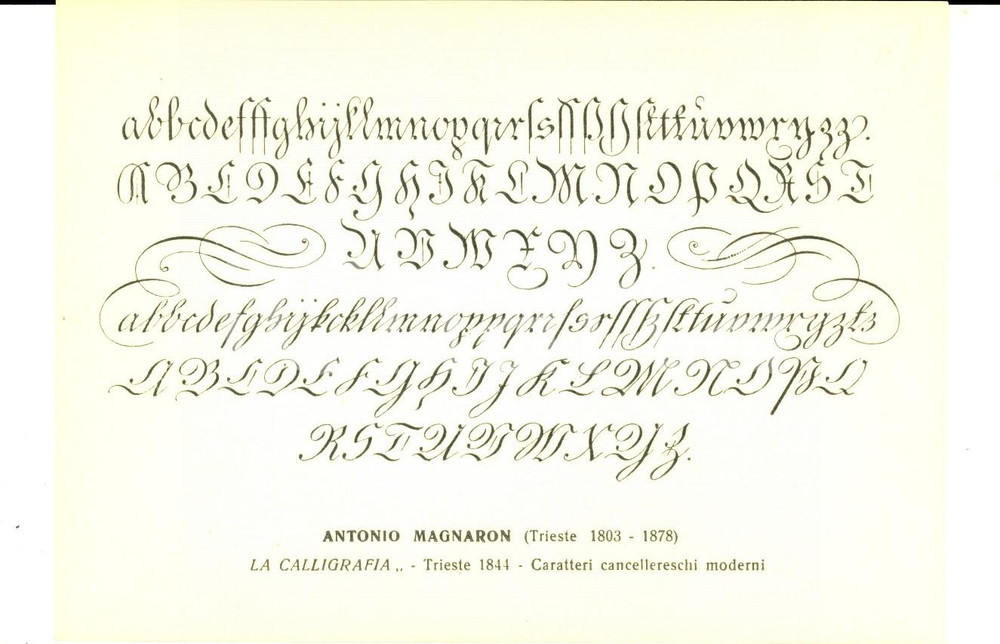 abbcdefffghijkllmnopqrrſsſſſßſſſtttůvwxyzzz.
A B C D E F G H I K L M N O P Q R S T
U V W X Y Z.
abbcdefghijkckllmnoppqrrſsrſſßſttůvwxyztz
A B C D E F G H I J K L M N O P Q
R S T U V W X Y Z.
ANTONIO MAGNARON (Trieste 1803 - 1878)
LA CALLIGRAFIA „ - Trieste 1844 - Caratteri cancellereschi moderni